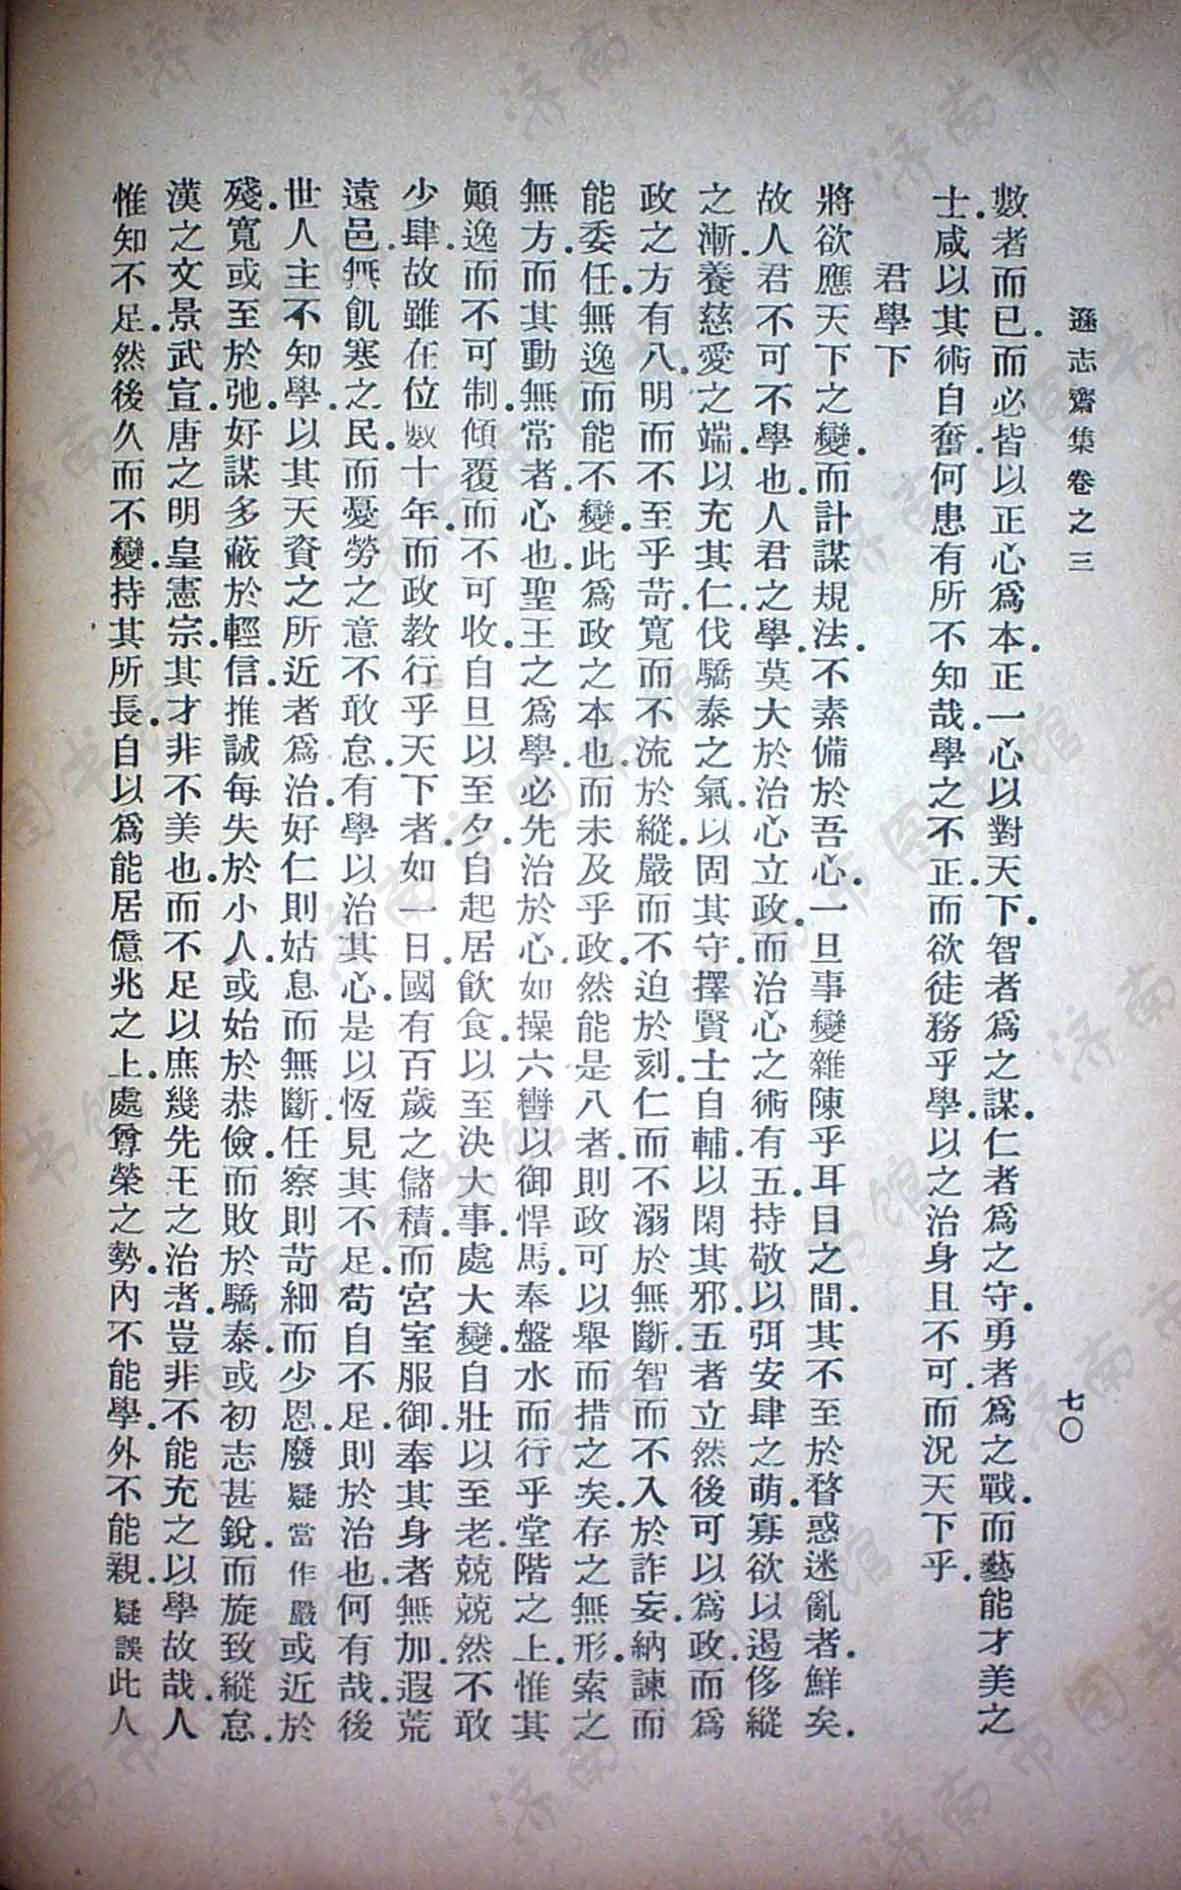 遜志齋集卷之三
七〇
數者而已．而必皆以正心爲本．正一心以對天下．智者爲之謀．仁者爲之守．勇者爲之戰．而藝能才美之
士．咸以其術自奮．何患有所不知哉．學之不正．而欲徒務乎學．以之治身且不可．而況天下乎．
君學下
將欲應天下之變．而計謀規法．不素備於吾心．一旦事變雜陳乎耳目之間．其不至於瞀惑迷亂者．鮮矣．
故人君不可不學也．人君之學．莫大於治心立政．而治心之術有五．持敬以弭安肆之萌．寡欲以遏侈縱
之漸．養慈愛之端．以充其仁．伐驕泰之氣．以固其守．擇賢士自輔．以閑其邪．五者立然後可以爲政．而爲
政之方有八．明而不至乎苛．寬而不流於縱．嚴而不迫於刻．仁而不溺於無斷．智而不入於詐妄．納諫而
能委任．無逸而能不變．此爲政之本也．而未及乎政．然能是八者．則政可以舉而措之矣．存之無形．索之
無方．而其動無常者．心也．聖王之爲學．必先治於心．如操六轡以御悍馬．奉盤水而行乎堂階之上．惟其
顚逸而不可制．傾覆而不可收．自旦以至夕．自起居飲食．以至決大事．處大變．自壯以至老．兢兢然不敢
少肆．故雖在位數十年．而政教行乎天下者．如一日．國有百歲之儲積．而宮室服御．奉其身者無加．遐荒
遠邑．無飢寒之民．而憂勞之意不敢怠．有學以治其心．是以恆見其不足．苟自不足．則於治也．何有哉．後
世人主不知學．以其天資之所近者爲治．好仁則姑息而無斷．任察則苛細而少恩．廢疑當作嚴或近於
殘．寬或至於弛．好謀多蔽於輕信．推誠每失於小人．或始於恭儉．而敗於驕泰．或初志甚銳．而旋致縱怠．
漢之文景武宣．唐之明皇憲宗．其才非不美也．而不足以庶幾先王之治者．豈非不能充之以學故哉．人
惟知不足．然後久而不變．持其所長．自以爲能居億兆之上．處尊榮之勢．內不能學．外不能親．疑誤此人